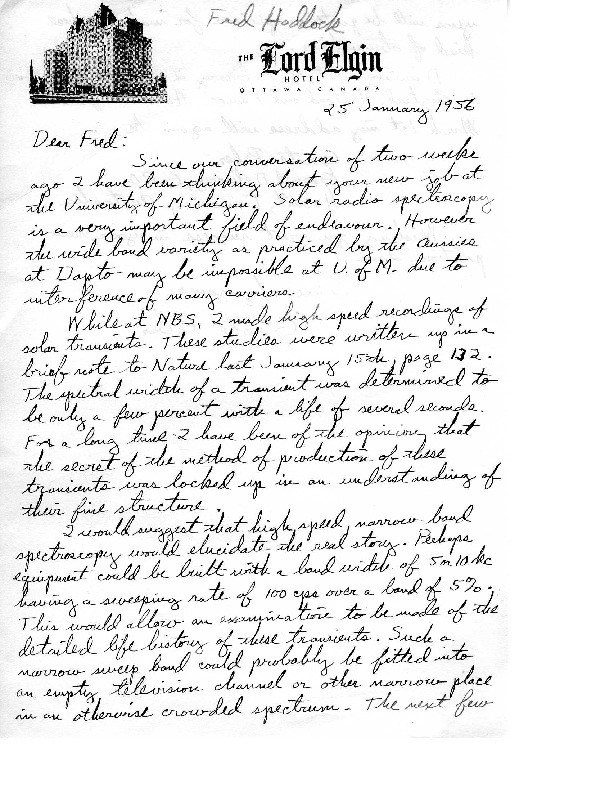 Fred Haddock
THE Lord Elgin
HOTEL
OTTAWA, CANADA
25 January 1956
Dear Fred:
Since our conversation of two weeks
ago I have been thinking about your new job at
the University of Michigan. Solar radio spectroscopy
is a very important field of endeavour. However
the wide band variety as practiced by the Aussies
at Dapto may be impossible at U. of M. due to
interference of many carriers.
While at NBS, I made high speed recordings of
solar transients. These studies were written up in a
brief note to Nature last January 15th, page 132.
The spectral width of a transient was determined to
be only a few percent with a life of several seconds.
For a long time I have been of the opinion that
the secret of the method of production of these
transients was locked up in an understanding of
their fine structure.
I would suggest that high speed, narrow band
spectroscopy would elucidate the real story. Perhaps
equipment could be built with a band width of 5 or 10 kc
having a sweeping rate of 100 cps over a band of 5%.
This would allow an examination to be made of the
detailed life history of these transients. Such a
narrow sweep band could probably be fitted into
an empty television channel or other narrow place
in an otherwise crowded spectrum. The next few